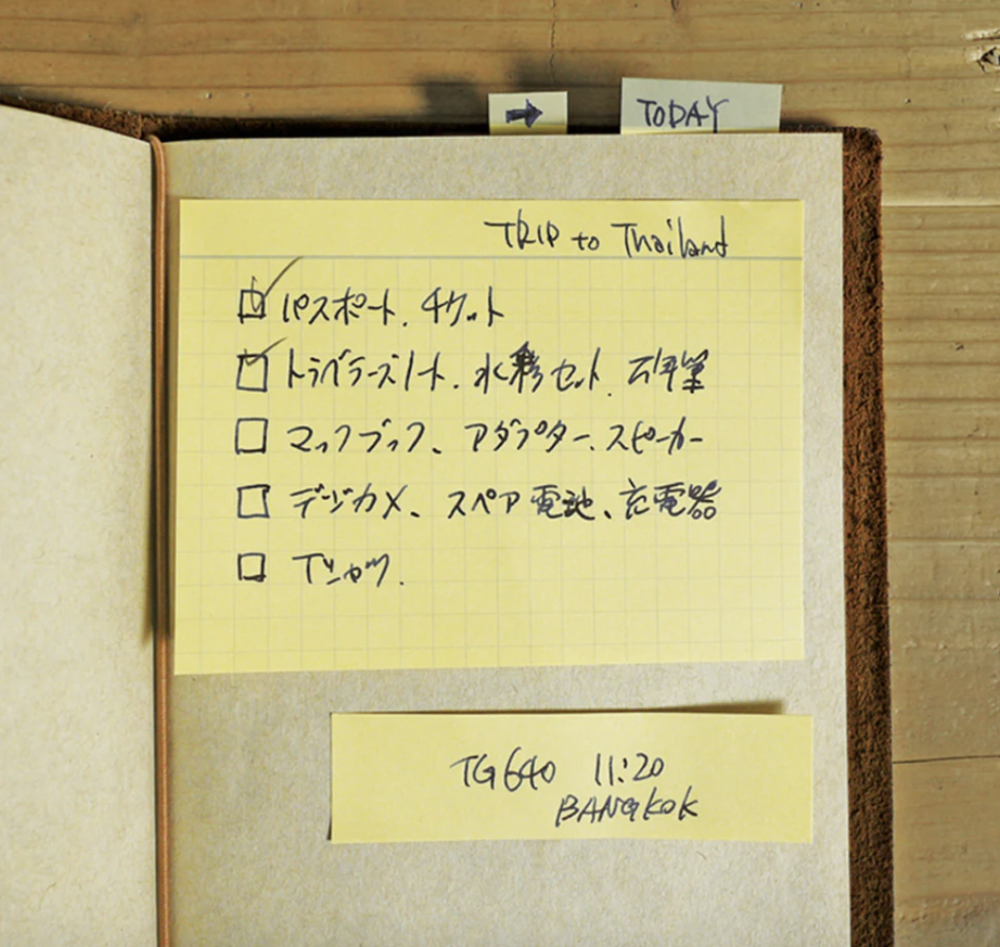 →
TODAY
TRIP to Thailand
☑ パスポート. チケット
☑ トラベラーズノート. 水彩セット. 鉛筆
☐ マックブック、アダプター、スピーカー
☐ デジカメ、スペア電池、充電器
☐ Tシャツ.
TG640 11:20
BANGKOK